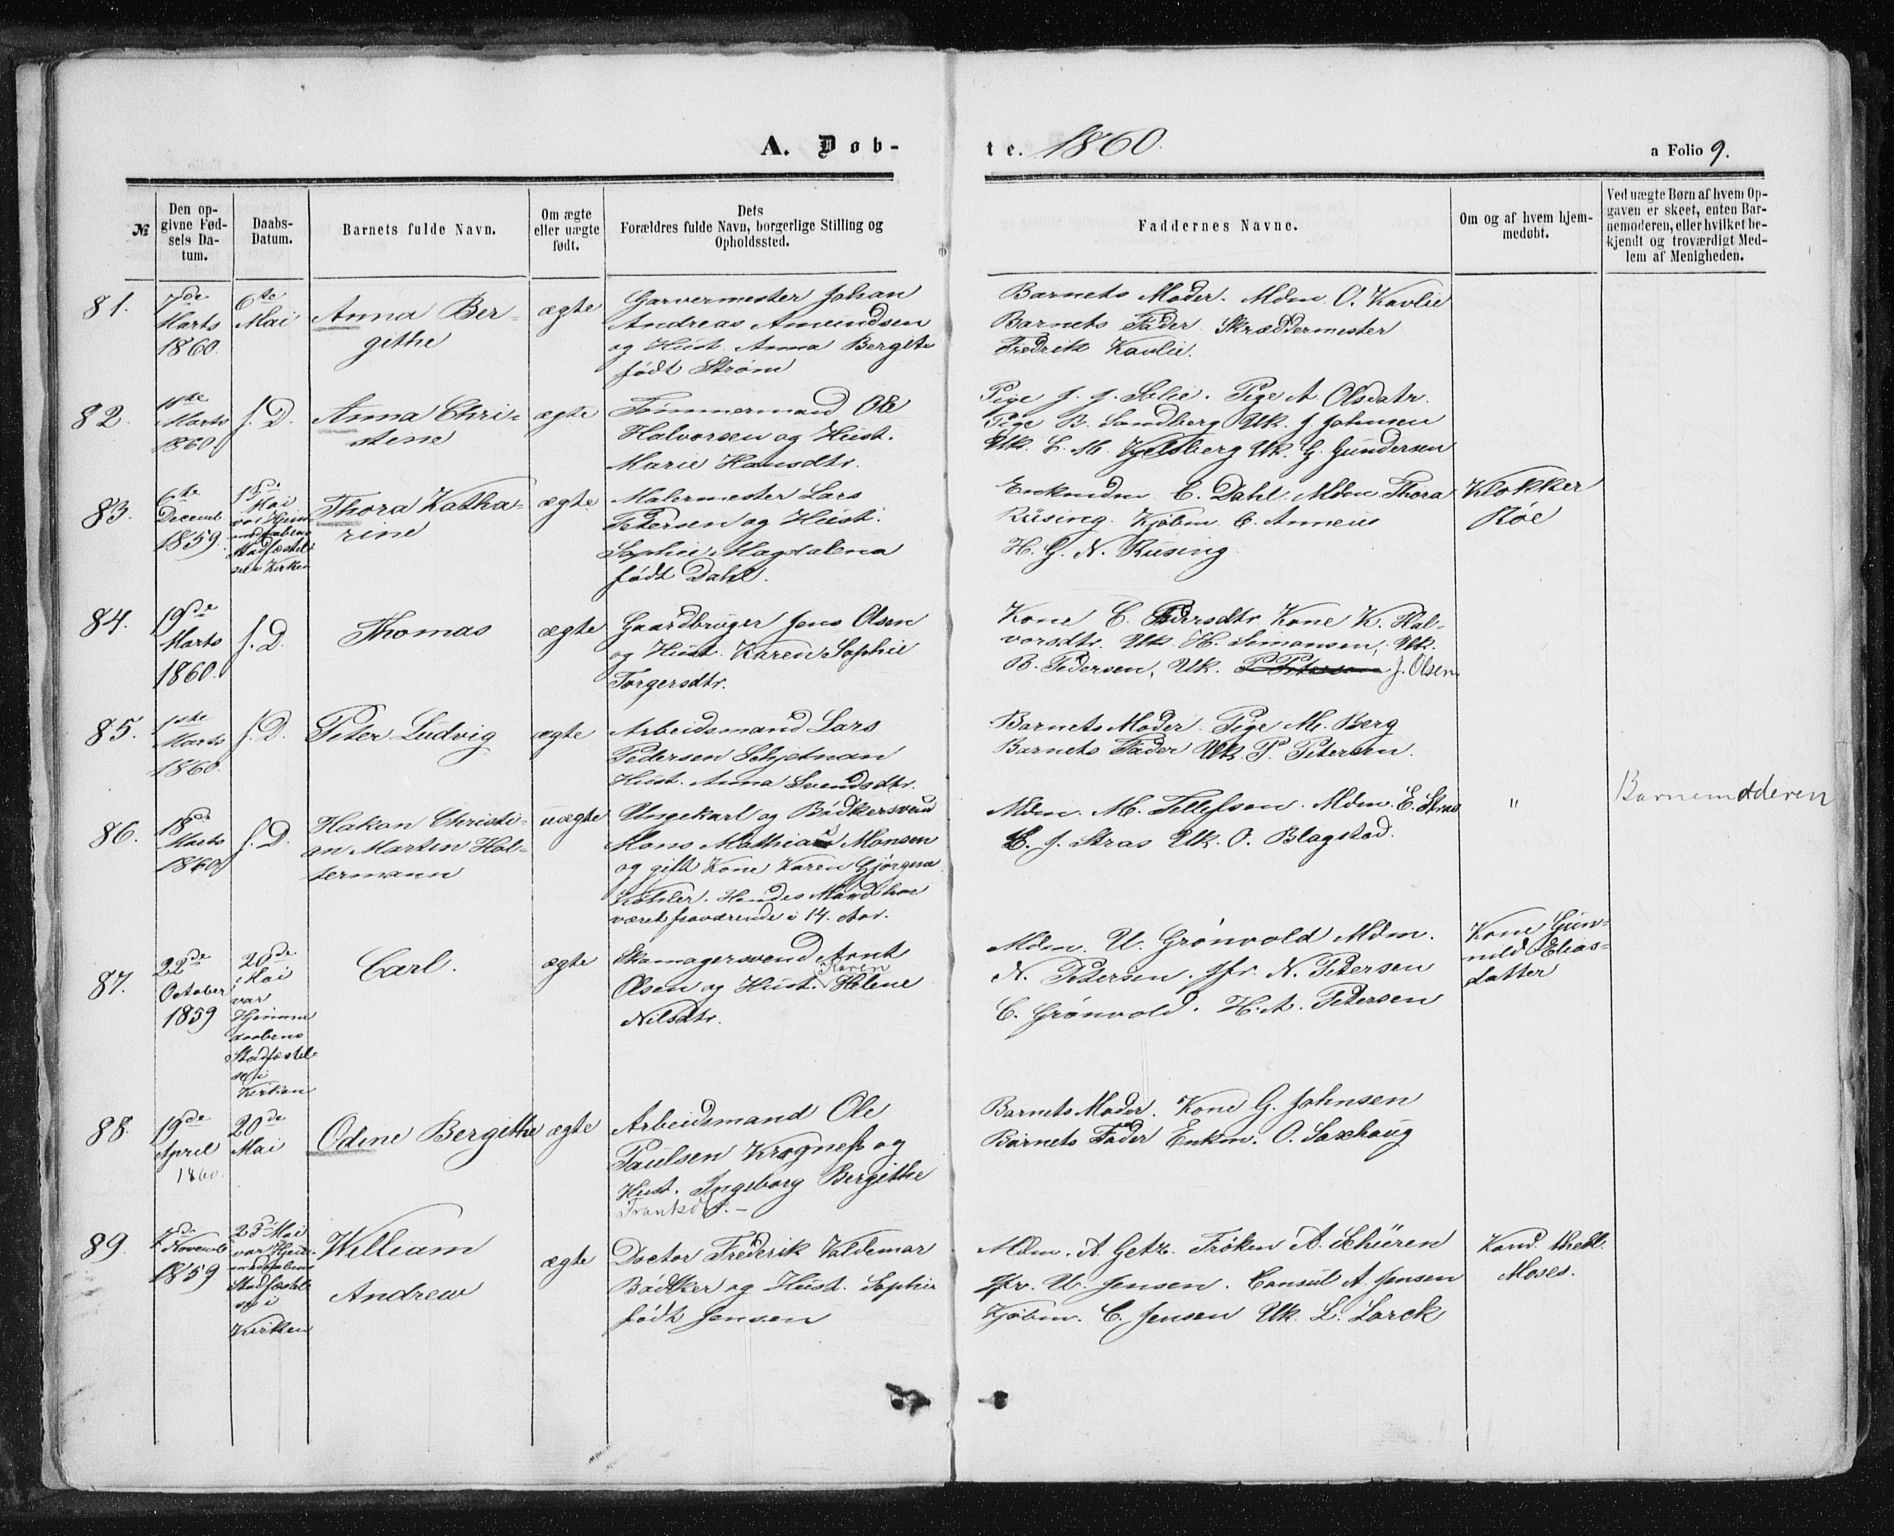 A. Døb-
te. 1860.
a Folio 9.
№
Den op-
givne Fød-
sels Da-
tum.
Daabs-
Datum.
Barnets fulde Navn.
Om ægte
eller uægte
født.
Dets
Forældres fulde Navn, borgerlige Stilling og
Opholdssted.
Faddernes Navne.
Om og af hvem hjem-
medøbt.
Ved uægte Børn af hvem Op-
gaven er skeet, enten Bar-
nemoderen, eller hvilket be-
kjendt og troværdigt Med-
lem af Menigheden.
81.
7de
Marts
1860.
6te
Mai
Anna Ber-
githe
ægte
Garvermester Johan
Andreas Amundsen
og Hust. Anna Bergite
født Strøm
Barnets Moder. Mdm. O. Kavlie
Barnets Fader. Skræddermester
Fredrik Kavlie.
82.
Marts
1860
s. D.
Anna Chri-
stine
ægte
Tømmermand Ole
Halvorsen og Hust.
Marie Hansdtr.
Pige J. J. Selie. Pige A Olsdatr.
Pige B. Sandberg Uk. J Johnsen
Uk. L. M. Kjelsberg Uk. G. Gundersen
83.
6te
Decemb.
1859.
13de
Mai
var Hjem
medaabens
Stadfæstel-
se i Kirken
Thora Katha-
rine
ægte
Malermester Lars
Petersen og Hust.
Sophie Magdalena
født Dahl.
Enkmdm C. Dahl. Mdm Thora
Rüsing. Kjøbm. C. Anneus
H. G. N. Rüsing.
Klokker
Røe
84.
19de
Marts
1860.
s. D.
Thomas
ægte
Gaardbruger Jens Olsen
og Hust. Karen Sophie
Torgersdtr.
Kone C. Pedersdtr Kone K. Hal-
vorsdtr. Uk. H. Simonsen, Uk.
B. Pedersen, Uk. P Petersen J. Olsen
85.
1ste
Marts
1860.
s. D.
Peter Ludvig
ægte
Arbeidsmand Lars
Pedersen Schjetnan
Hust. Anna Svendsdtr.
Barnets Moder. Pige M. Berg
Barnets Fader Uk. P. Petersen.
86.
18de
Marts
1860
s. D.
Hakon Christi-
an Martin Hol-
termann
uægte
Ungekarl og Bødkersvend
Mons Mathias Monsen
og gift Kone Karen Gjørgina
Köhler. Hendes Mand har
været fraværende i 14. Aar.
Mdm. M. Tellefsen. Mdm. E. Stras
C. J. Stras Uk. O. Blagstad.
"
Barnemoderen
87.
22de
October
1859
20de
Mai
var
Hjemme
daabens
Stadfæstel
se i
Kirken
Carl.
ægte
Skomagersvend Arnt
Olsen og Hust. Karen Helene
Nilsdtr.
Mdm. U. Grønvold Mdm.
N. Petersen. Jfr. N. Petersen
C. Grønvold. H. A. Petersen
Kone Gun-
nild Elias-
datter
88.
19de
April
1860.
20de
Mai
Odine Bergithe
ægte
Arbeidsmand Ole
Paulsen Krogness og
Hust. Ingeborg Bergithe
Frantsdtr. –
Barnets Moder. Kone G. Johnsen
Barnets Fader Enkm. O. Saxhaug
89.
Novemb
1859
Mai
var Hjem
medaabens
Stadfæstel
se i
Kirken
William
Andrew
ægte
Doctor Frederik Valdemar
Bødtker og Hust. Sophie
født Jensen
Mdm. A Getz. Frøken A. Schüren
Jfr. U. Jensen. Consul A. Jensen
Kjøbm. C. Jensen Uk. L. Lorck
Kand. theol.
Moses.